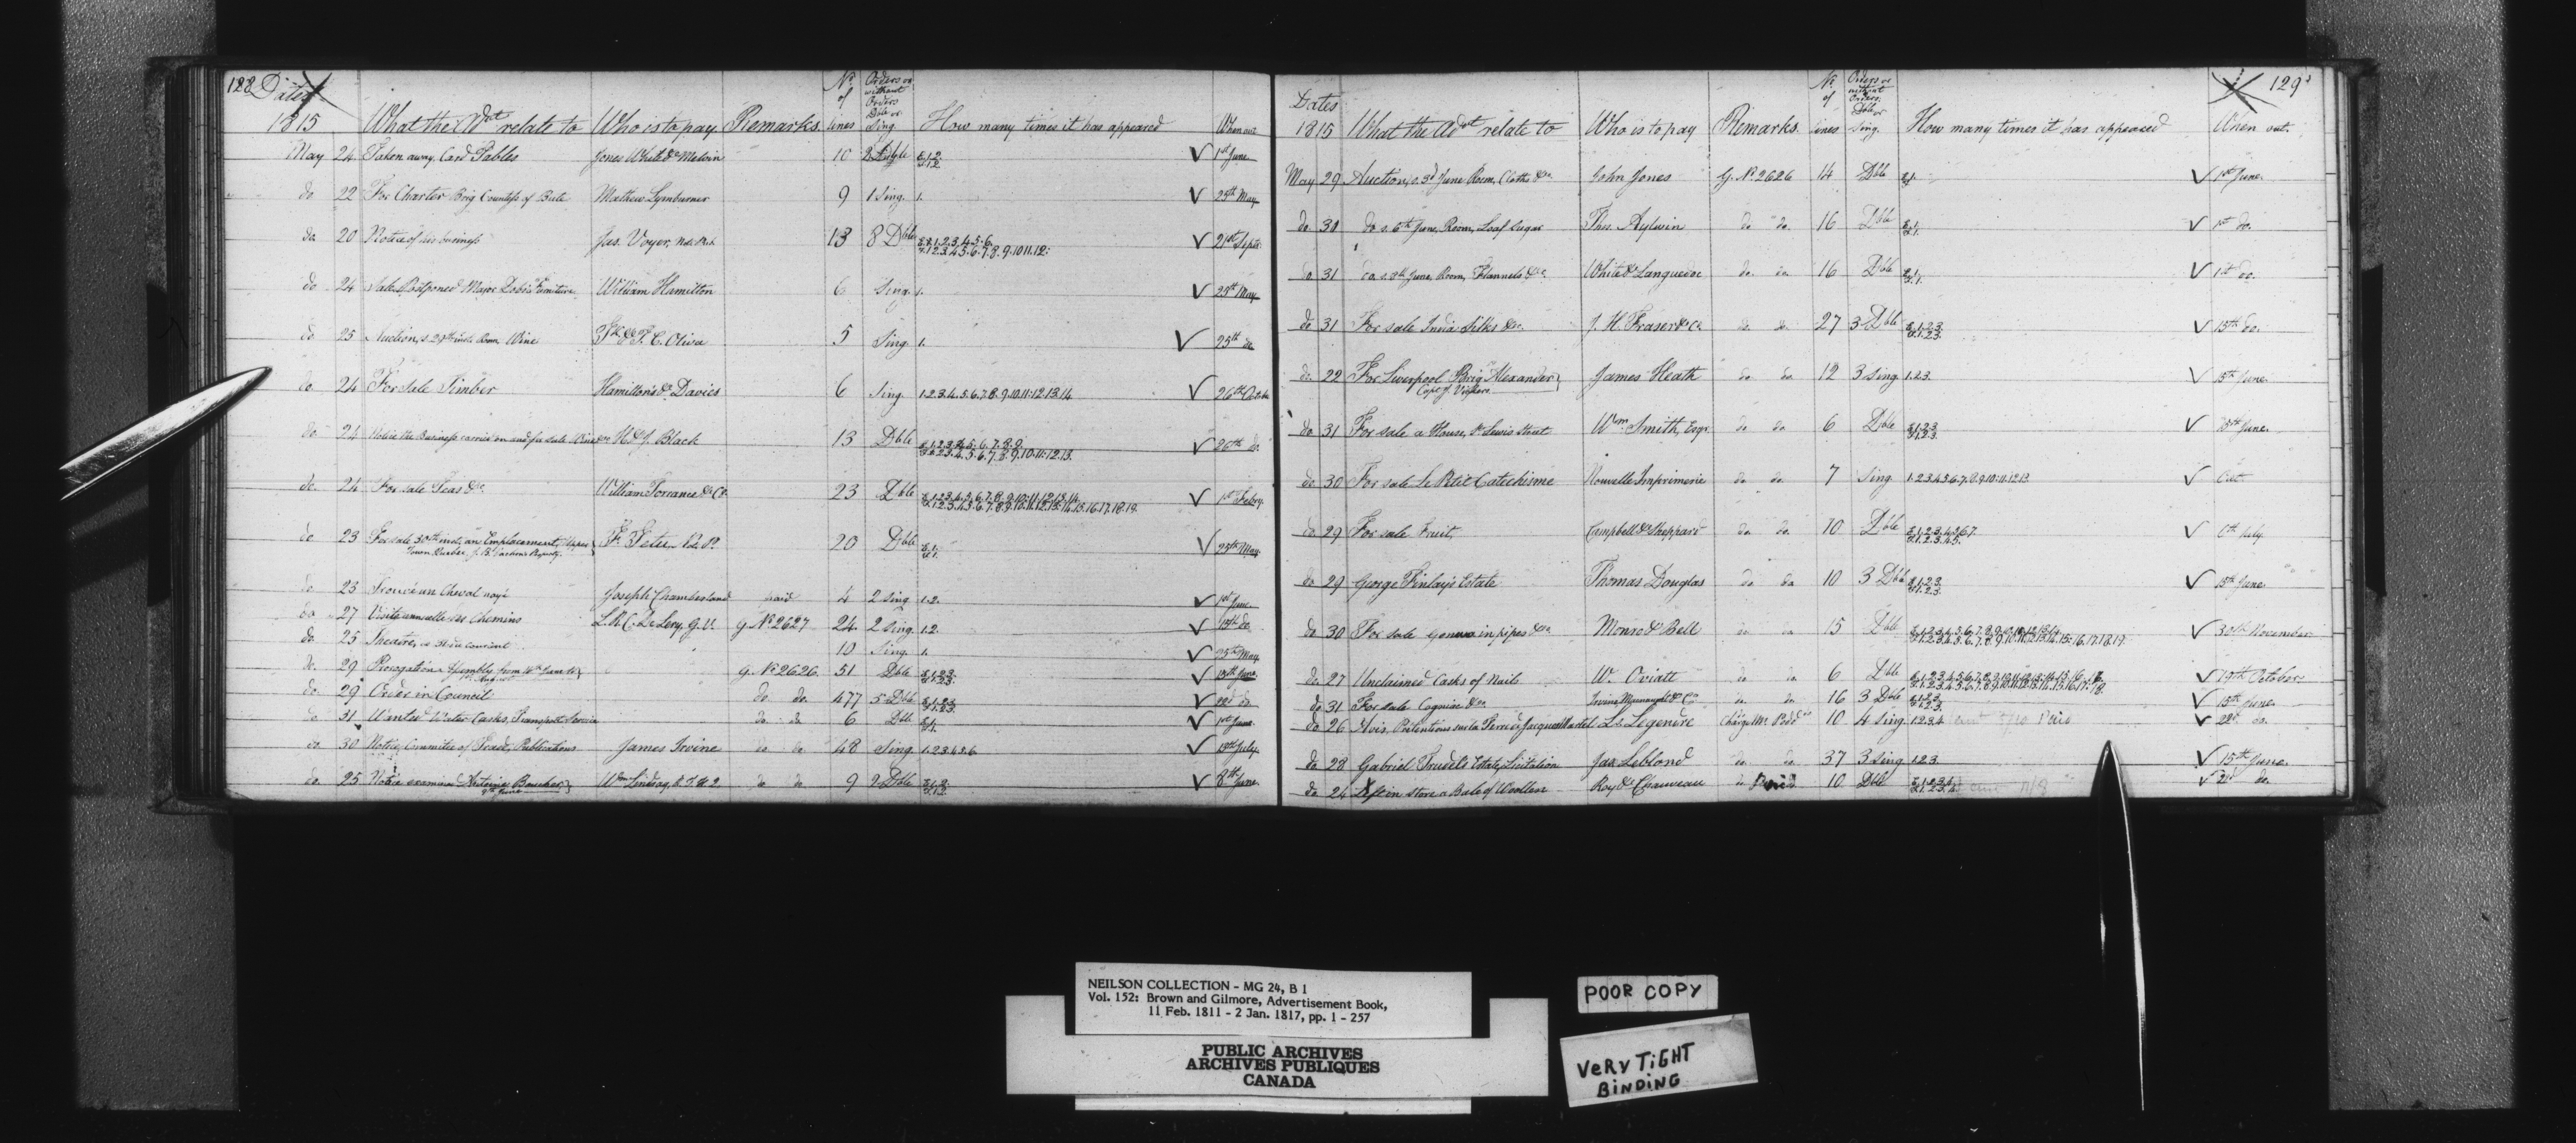 128 Dates
1815 What the Adt relate to Who is to pay Remarks No of lines Orders or without Orders Dble or Sing. How many times it has appeared When out
May 24 Taken away Card Tables Jones White & Melvin 10 2 Dble 1.2 1st June
do 22 For Charter Brig Countess of Bute Mathew Lymburner 9 1 Sing. 1. 25th May
do 20 Notice of his business Jas. Voyer, Not. Pub. 13 8 Dble 1.2.3.4.5.6. 21st Septr
1.2.3.4.5.6.7.8.9.10.11.12.
do 24 Sale Postponed Major Furniture William Hamilton 6 Sing. 1. 25th May
do 25 Auction, s. 29th inst. Room Wine & F. C. Oliva 5 Sing. 1. 25th do
do 24 For Sale Timber Hamilton's & Davies 6 Sing. 1.2.3.4.5.6.7.8.9.10.11.12.13.14 26th October
do 24 Notice the Business carried on and for sale Wine &c H. & J. Black 13 Dble 1.2.3.4.5.6.7.8.9. 26th do.
1.2.3.4.5.6.7.8.9.10.11.12.13.
do. 24 For sale Teas &c. William Torrance & Co. 23 Dble 1.2.3.4.5.6.7.8.9.10.11.12.13.14. 1st Febry.
1.2.3.4.5.6.7.8.9.10.11.12.13.14.15.16.17.18.19.
do 23 For sale 30th inst. an Emplacement, Upper Town Quebec, J. B. Property. 20 Dble 1. 25th May
do 23 Trouvé un Cheval noyé Joseph Chamberland paid 4 2 Sing 1.2. 1st June
do 27 Visite annuelle des Chemins L. R. C. De Lery, G. V. G. No 2627 24 2 Sing. 1.2. 15th do
do. 25 Theatre, 10 Sing. 1. 25th May
do. 29 Prorogation Assembly from G. No 2626. 51 Dble 1.2.3. 15th June
do. 29 Order in Council do do. 477 5 Dble 1.2.3. do
do 31 Wanted Water Casks, Transport Service do do 6 Dble 1. 1st June
do. 30 Notice, Committee of Trade, Publications James Irvine do do 48 Sing. 1.2.3.4.5.6 13th July
do. 25 Notice examine Antoine Boucher Wm Lindsay do do 9 2 Dble 1.2. 8th June
129
Dates
1815 What the Adt relate to Who is to pay Remarks. No. of lines Orders or without Orders. Dble or Sing. How many times it has appeared When out.
May 29 Auction, s. 3d June Room, Cloths &c. John Jones G. No. 2626 14 Dble 1. 1st June.
do 30 do s. 6th June, Room, Loaf Sugar Thos. Aylwin do do. 16 Dble 1. 1st do.
do 31 do. s. 8th June, Room, Flannels &c. White & Languedoc do. do. 16 Dble 1. 1st do.
do 31 For sale India Silks &c. J. H. Fraser & Co. do. do. 27 3 Dble 1.2.3 15th do.
1.2.3.
do. 22 For Liverpool Brig Alexander James Heath do do. 12 3 Sing. 1.2.3. 15th June.
Capt. G. Vickers
do 31 For sale a House, St Lewis Street Wm. Smith, Esqr do do. 6 Dble 1.2.3 15th June.
1.2.3.
do 30 For sale Le Petit Catechisme Nouvelle Imprimerie do do. 7 Sing. 1.2.3.4.5.6.7.8.9.10.11.12.13 Out
do 29 For sale Fruit, Campbell & Sheppard do. do. 10 Dble 1.2.3.4.5.6.7. 6th July.
1.2.3.4.5.
do 29 George Finlay's Estate Thomas Douglas do do 10 3 Dble 1.2.3 15th June
1.2.3.
do 30 For sale Geneva in pipes &c. Monro & Bell do do 15 Dble 1.2.3.4.5.6.7.8.9.10.11.12.13.14 30th November
1.2.3.4.5.6.7.8.9.10.11.12.13.14.15.16.17.18.19.
do 27 Unclaimed Casks of Nails W. Oviatt do do. 6 Dble 1.2.3.4.5.6.7.8.9.10.11.12.13.14.15.16.17. 19th October.
1.2.3.4.5.6.7.8.9.10.11.12.13.14.15.16.17.18.
do 31 For sale Cognac &c. Irvine, McNaught & Co do. do. 16 3 Dble 1.2.3. 15th June.
do 26 Avis, Pretentions sur la Terre de Jacques Martel Ls. Legendre 10 4 Sing. 1.2.3.4 Paid 22d do.
do 28 Gabriel Trudel's Estate, Licitation Jas. Leblond do. do. 37 3 Sing. 1.2.3. 15th June.
do 24 Left in store a Bale of Woollen Roy & Chauveau do Paid 10 Dble 1.2.3.4. do.
NEILSON COLLECTION - MG 24, B 1
Vol. 152: Brown and Gilmore, Advertisement Book,
11 Feb. 1811 - 2 Jan. 1817, pp. 1 - 257
PUBLIC ARCHIVES
ARCHIVES PUBLIQUES
CANADA
POOR COPY
VERY TIGHT
BINDING